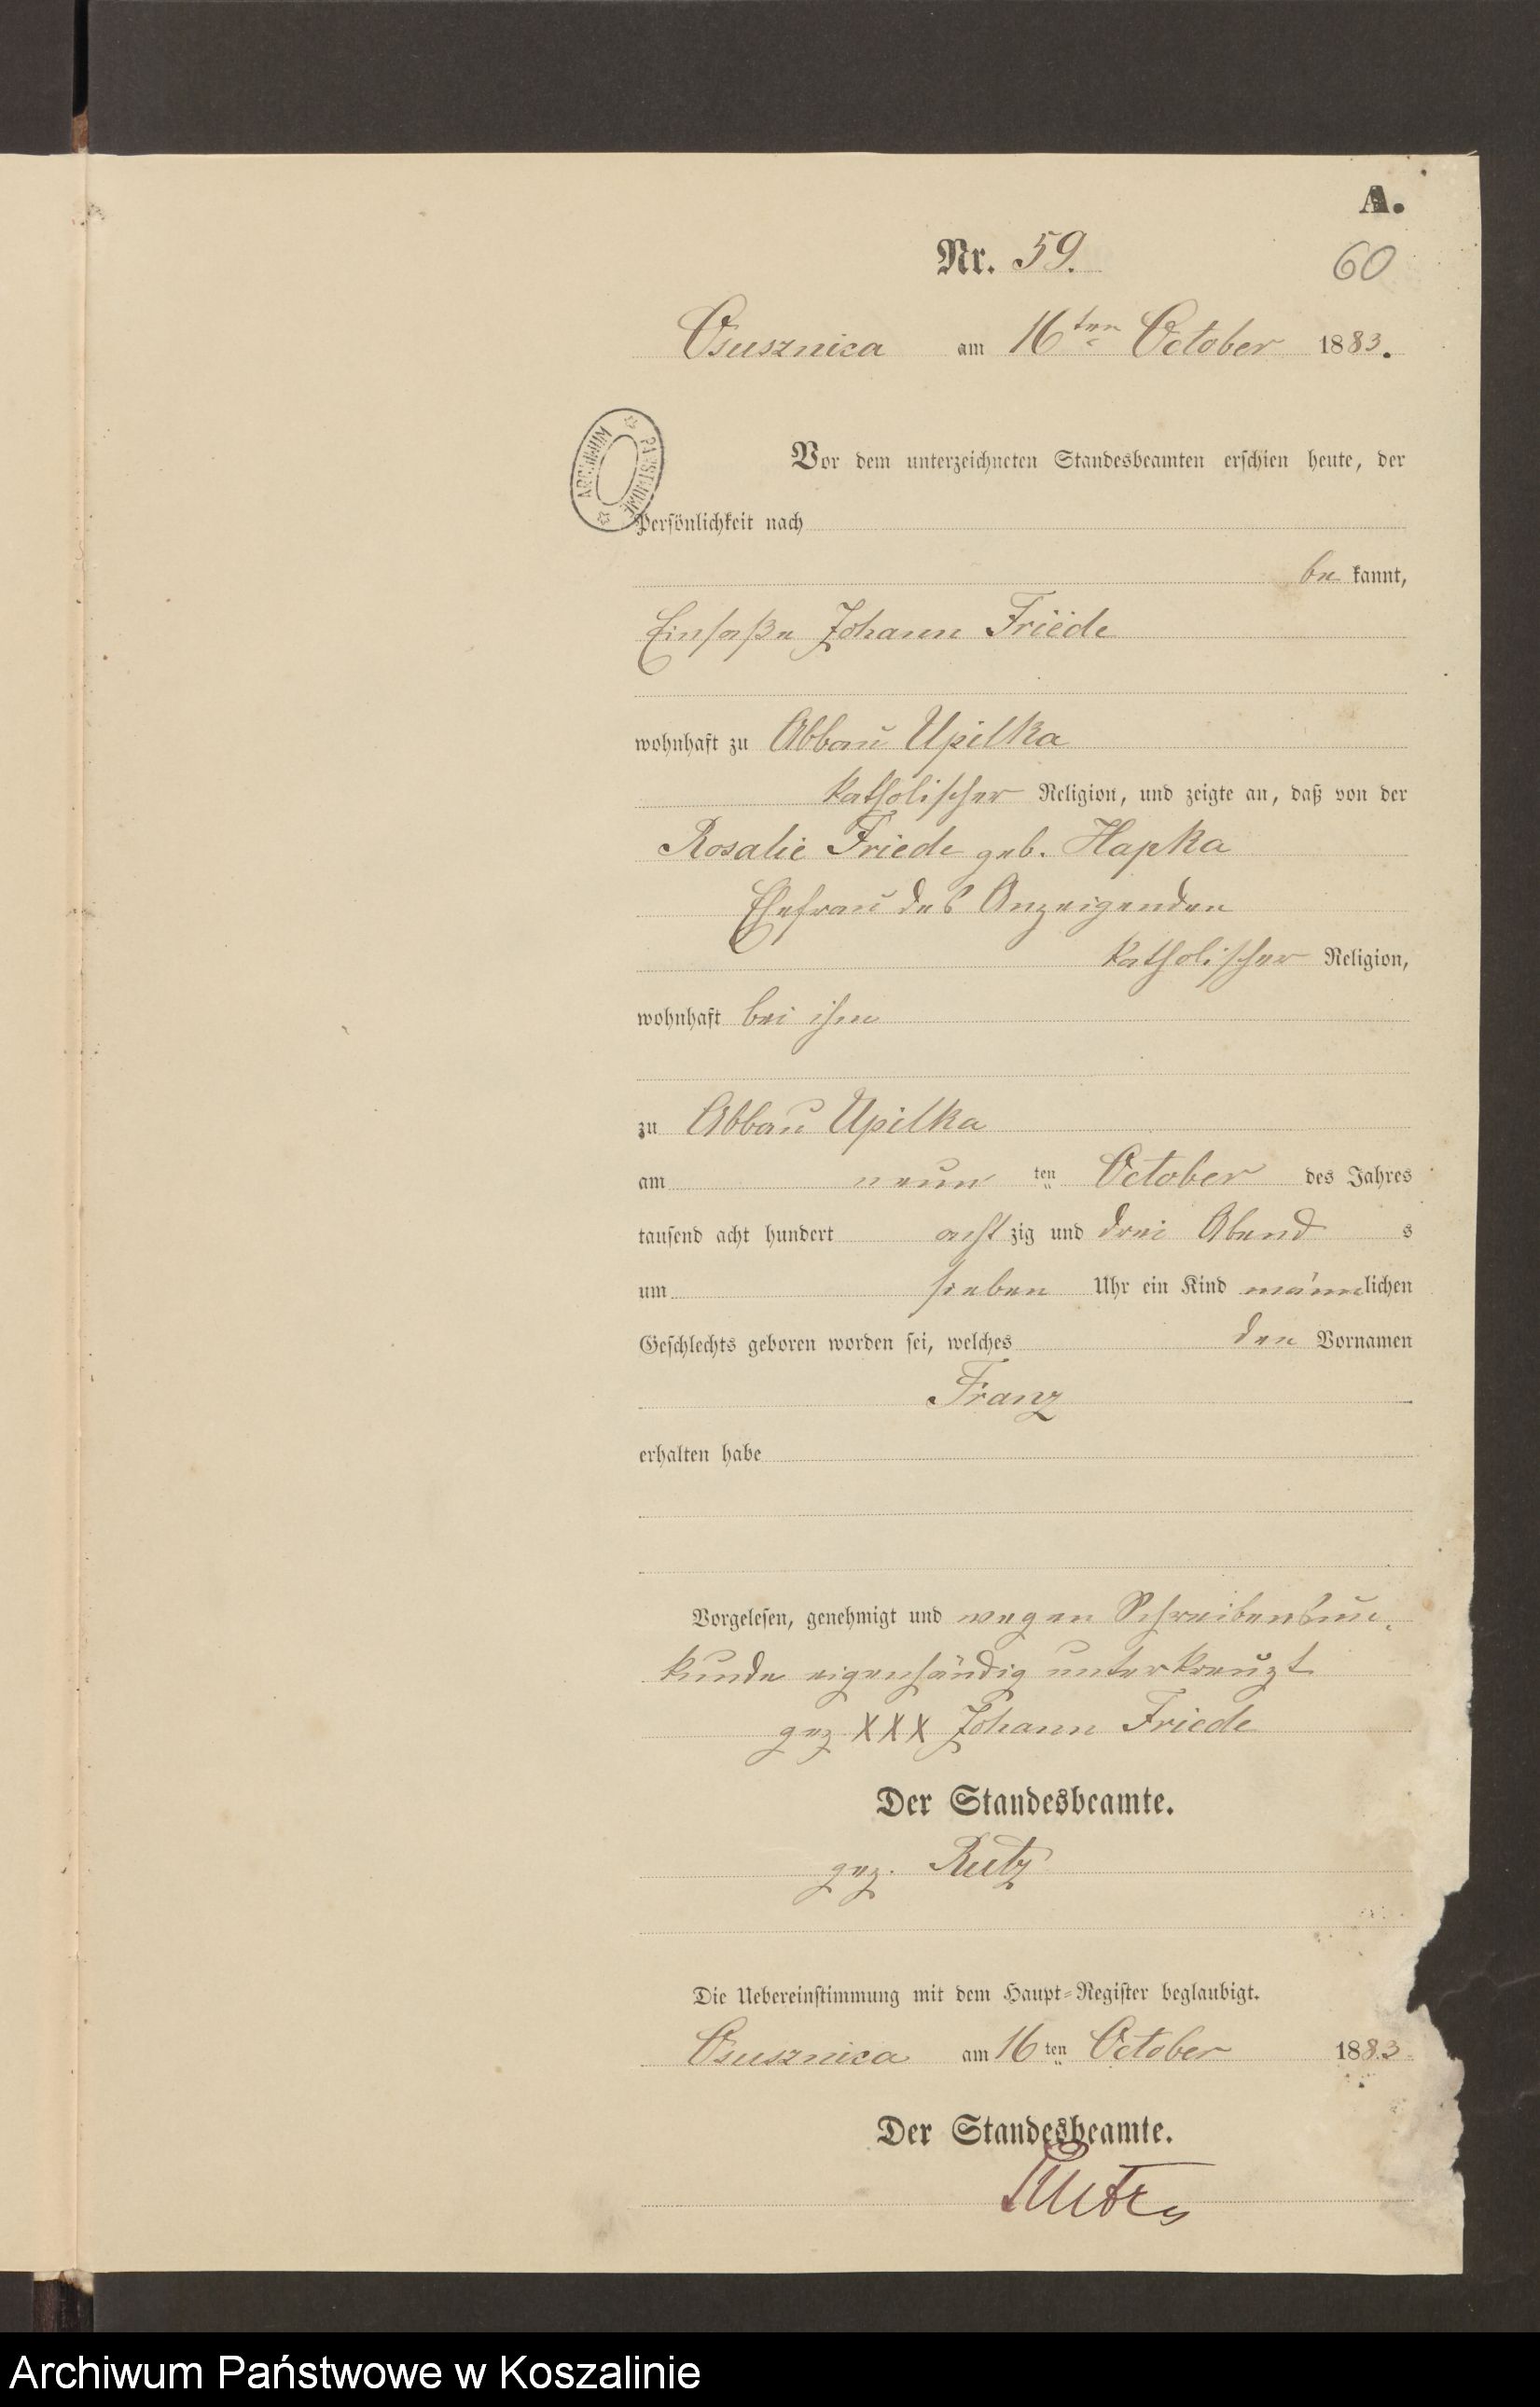 A.
Nr. 59.
60
Osusznica am 16ten October 1883.
ARCHIWUM PAŃSTWOWE
Vor dem unterzeichneten Standesbeamten erschien heute, der
Persönlichkeit nach
be kannt,
Einsaße Johann Friede
wohnhaft zu Abbau Upilka
katholischer Religion, und zeigte an, daß von der
Rosalie Friede geb. Hapka
Ehefrau des Anzeigenden
katholischer Religion,
wohnhaft bei ihm
zu Abbau Upilka
am neun ten October des Jahres
tausend acht hundert acht zig und drei Abend s
um sieben Uhr ein Kind männlichen
Geschlechts geboren worden sei, welches den Vornamen
Franz
erhalten habe
Vorgelesen, genehmigt und wegen Schreibensun-
kunde eigenhändig unterkreuzt
gez. XXX Johann Friede
Der Standesbeamte.
gez. Rutz
Die Uebereinstimmung mit dem Haupt-Register beglaubigt.
Osusznica am 16 ten October 1883
Der Standesbeamte.
Rutz
Archiwum Państwowe w Koszalinie